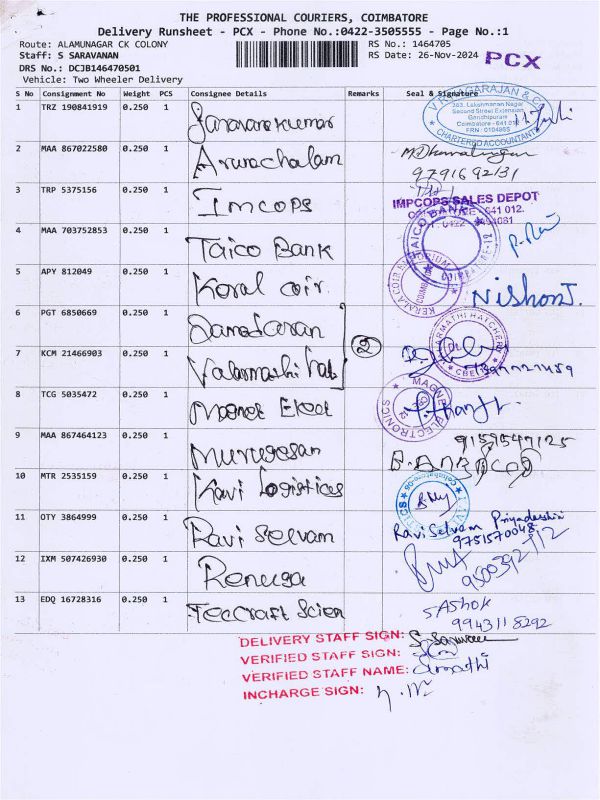 THE PROFESSIONAL COURIERS, COIMBATORE
Delivery Runsheet - PCX - Phone No.:0422-3505555 - Page No.:1
Route: ALAMUNAGAR CK COLONY RS No.: 1464705
Staff: S SARAVANAN RS Date: 26-Nov-2024 PCX
DRS No.: DCJB146470501
Vehicle: Two Wheeler Delivery
S No Consignment No Weight PCS Consignee Details Remarks Seal & Signature
1 TRZ 190841919 0.250 1 Saravanakumar
V RAJAGARAJAN & CO
363, Lakshmanan Nagar
Second Street Extension
Gandhipuram
Coimbatore - 641 012
FRN : 010498S
CHARTERED ACCOUNTANTS
2 MAA 867022580 0.250 1 Arunachalam
9791692131
3 TRP 5375156 0.250 1 Imcops
IMPCOPS SALES DEPOT
641 012.
4 MAA 703752853 0.250 1 Taico Bank
TAICO BANK
5 APY 812049 0.250 1 Keral coir.
Nishon J.
6 PGT 6850669 0.250 1 Damodaran
7 KCM 21466903 0.250 1 2
HATCHERY
CBE
8 TCG 5035472 0.250 1 Magnet Elect
MAGNET ELECTRONICS
9 MAA 867464123 0.250 1 Murugesan
9159547125
10 MTR 2535159 0.250 1 Kavi Logistices
11 OTY 3864999 0.250 1 Ravi Selvam
Ravi Selvam Priyadarshini
9751570048
12 IXM 507426930 0.250 1 Renuga
13 EDQ 16728316 0.250 1 Teccraft Scien
S Ashok
9943118292
DELIVERY STAFF SIGN:
VERIFIED STAFF SIGN:
VERIFIED STAFF NAME:
INCHARGE SIGN: